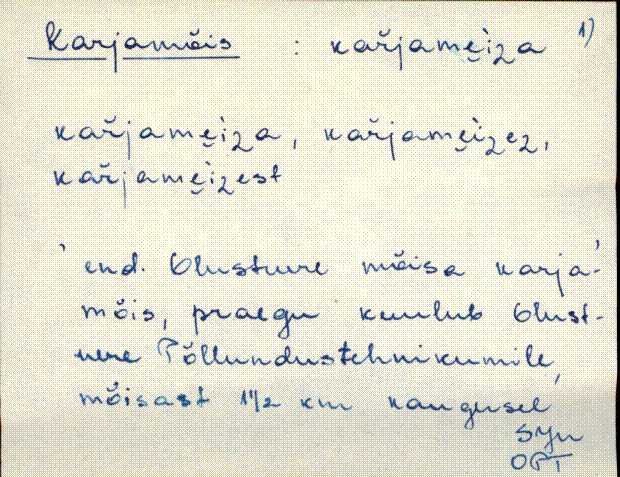 Karjamõis : kaŕjamɛ̮i̯za 1)
kaŕjamɛ̮i̯za, kaŕjamɛ̮i̯zez,
kaŕjamɛ̮i̯zest
'end. Olustvere mõisa karja-'
mõis, praegu kuulub Olust-
vere Põllundustehnikumile,
mõisast 1 1/2 km kaugusel
Syn
OPT